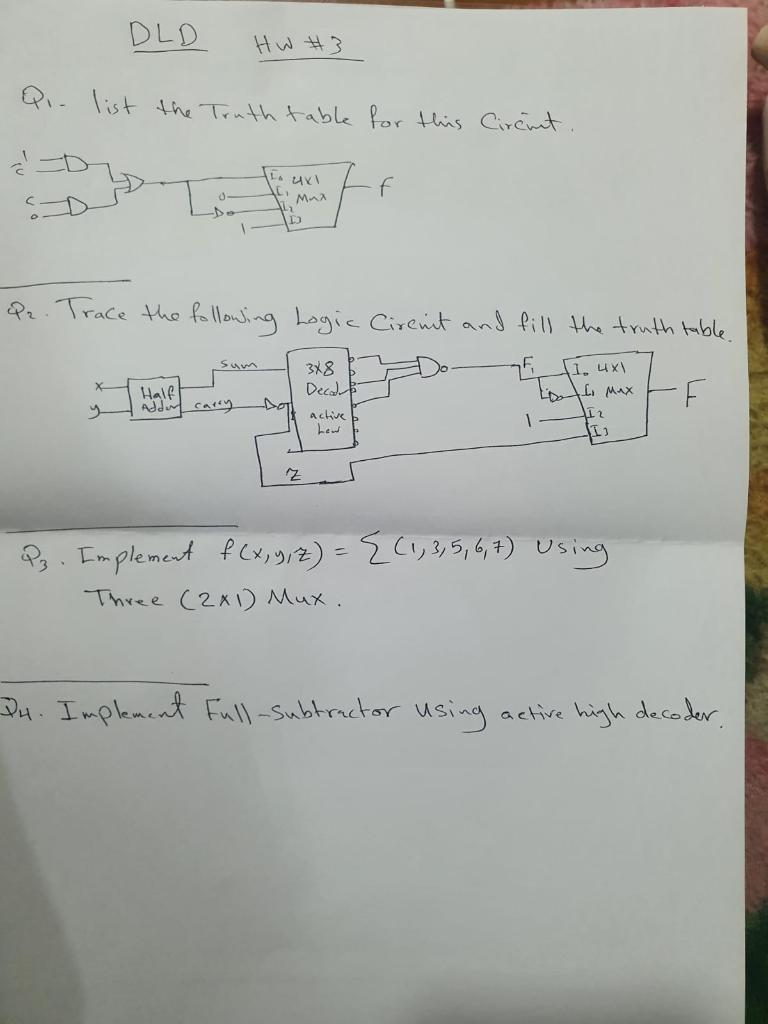 DLD HW #3
Q1- list the Truth table for this Circuit.
1
C̄
C
0
I0 4x1
I1 Mux
I2
I3
0
1
f
Q2. Trace the following Logic Circuit and fill the truth table.
x
y
Half
Adder
Sum
carry
3x8
Decod
active
Low
Z
F1
I0 4x1
I1 Mux
I2
I3
1
F
Q3. Implement f(x,y,z) = Σ(1,3,5,6,7) Using
Three (2x1) Mux.
Q4. Implement Full-subtractor using active high decoder.